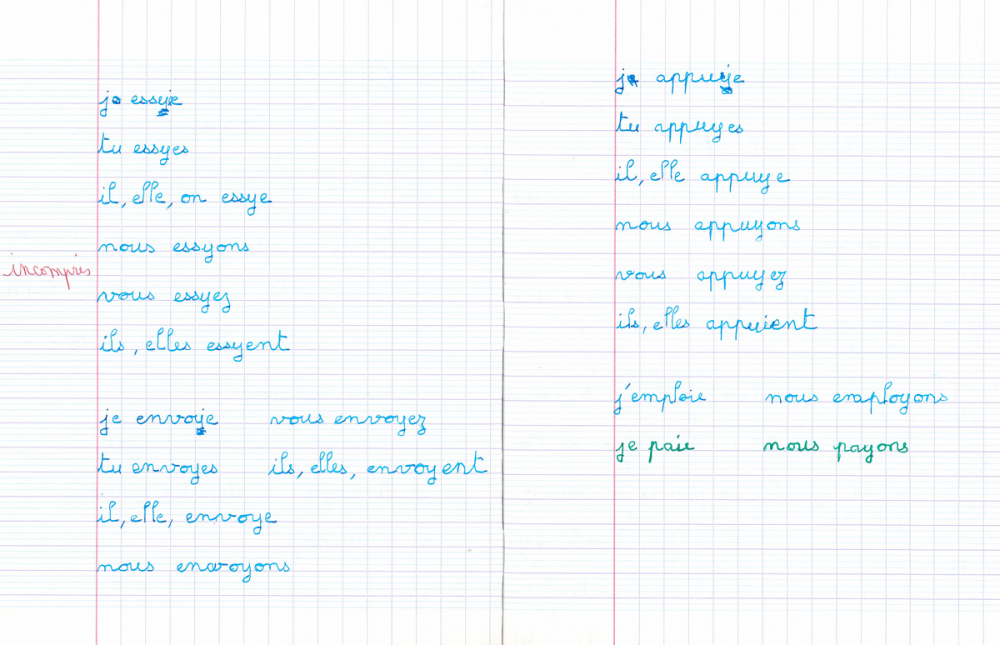 je essye
tu essyes
il, elle, on essye
nous essyons
incompris
vous essyez
ils, elles essyent
je envoye vous envoyez
tu envoyes ils, elles, envoyent
il, elle, envoye
nous envoyons
je appuye
tu appuyes
il, elle appuye
nous appuyons
vous appuyez
ils, elles appuient
j'emploie nous employons
je paie nous payons